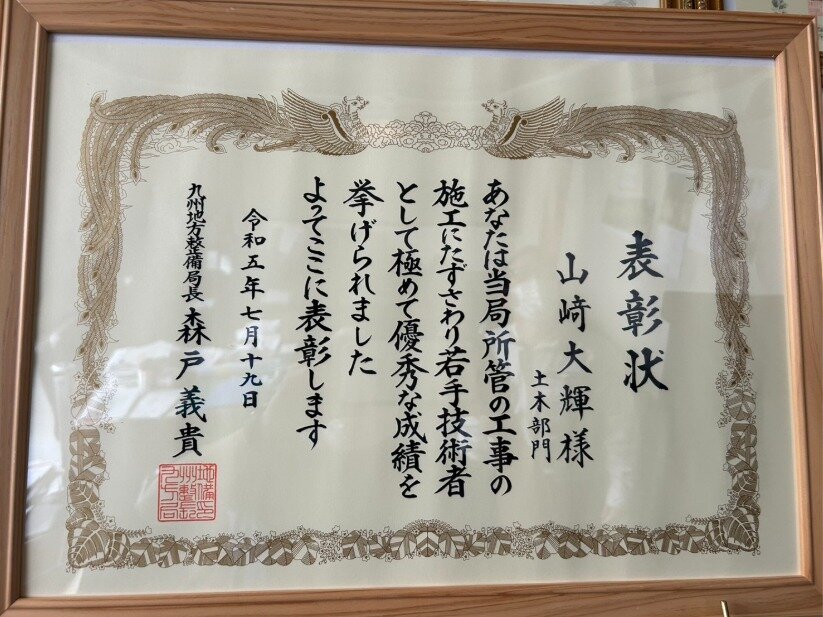 表彰状
山﨑大輝様
土木部門
あなたは当局所管の工事の
施工にたずさわり若手技術者
として極めて優秀な成績を
挙げられました
よってここに表彰します
令和五年七月十九日
九州地方整備局長 森戸義貴